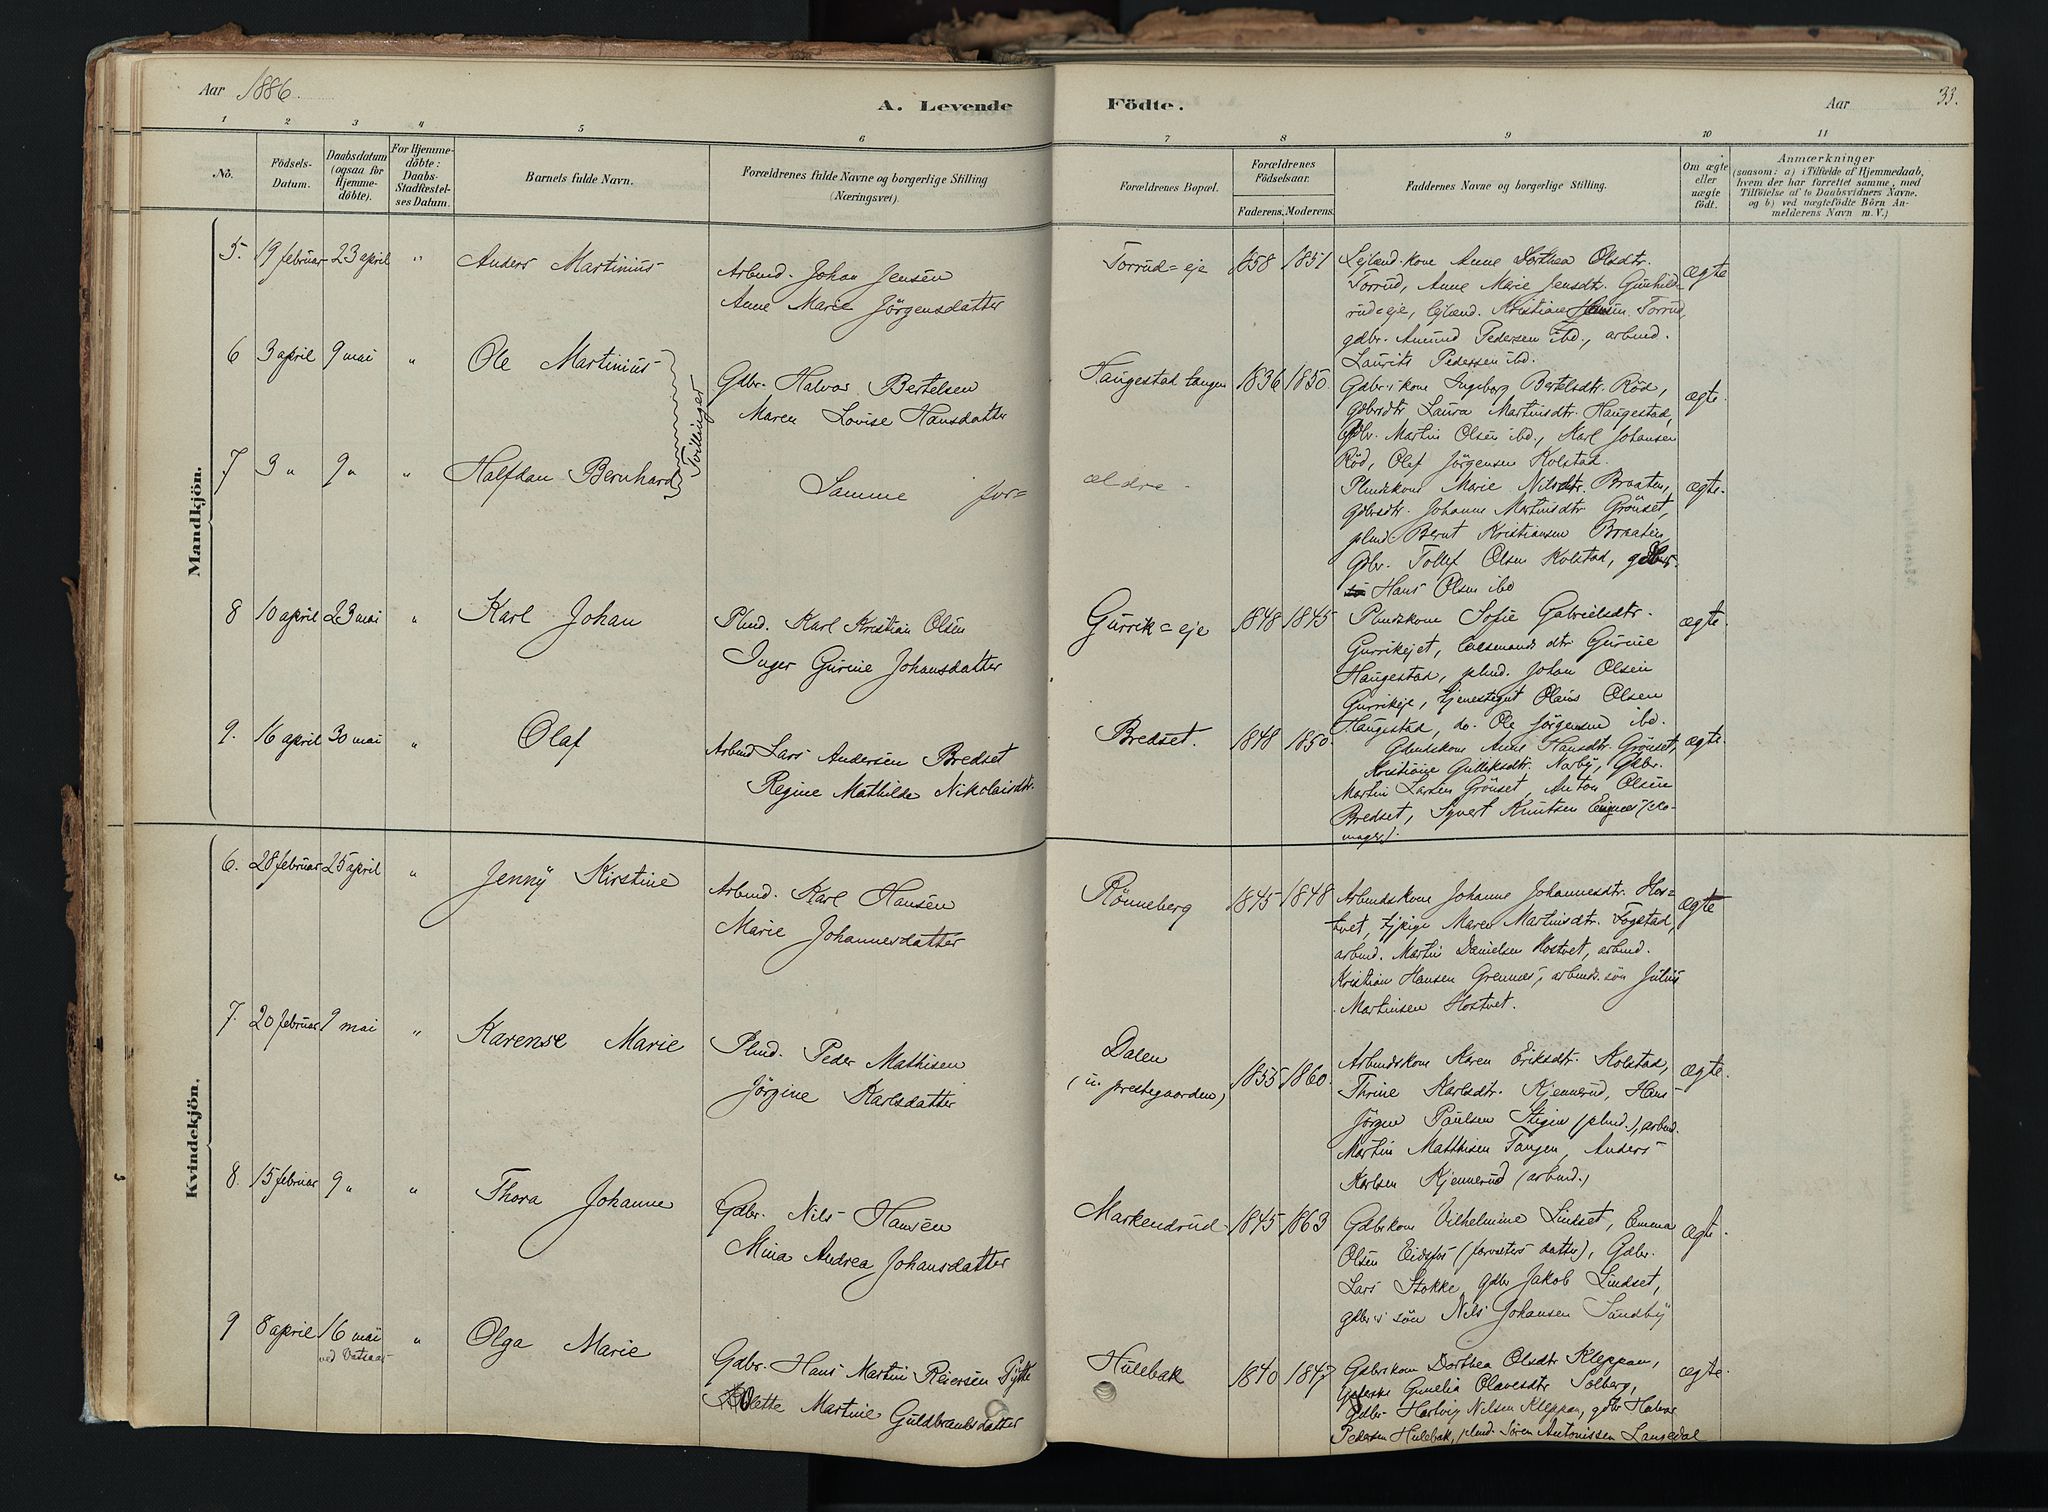 Aar 1886.
A. Levende Födte.
Aar
33.
1 2 3 4 5 6 7 8 9 10 11
No.
Födsels-Datum.
Daabsdatum (ogsaa for Hjemme-döbte).
For Hjemme-döbte: Daabs-Stadfæstel-ses Datum.
Barnets fulde Navn.
Forældrenes fulde Navne og borgerlige Stilling (Næringsvei).
Forældrenes Bopæl.
Forældrenes Födselsaar.
Faderens. Moderens.
Faddernes Navne og borgerlige Stilling.
Om ægte eller uægte födt.
Anmærkninger
(saasom: a) i Tilfælde af Hjemmedaab,
hvem der har forrettet samme, med
Tilföielse af to Daabsvidners Navne.
og b) ved uægtefödte Börn An-
melderens Navn m. V.)
Mandkjön.
5. 19 februar 23 april " Anders Martinius
Arbmd. Johan Jensen
Anne Marie Jörgensdatter
Torrud=eje 1858 1851
Lejlænd. kone Anne Dorthea Olsdtr.
Torrud, Anne Marie Jensdtr. Gunhild-
rud=eje, lejlænd. Kristian Jensen Torrud,
gdbr. Amund Pedersen ibd., arbmd.
Laurits Pedersen ibd.
ægte
6 3 april 9 mai " Ole Martinius
Tvillinger
Gdbr. Halvor Bertelsen
Maren Lovise Hansdatter
Haugestad tangen 1836 1850.
Gdbr.s kone Ingeborg Bertelsdtr. Röd,
gdbrsdtr Laura Martinsdtr. Haugestad,
Gdbr. Martin Olsen ibd., Karl Johansen
Röd, Olef Jörgensen Kolstad.
ægte.
7 3 " 9 " " Halfdan Bernhard
Samme for=
ældre.
Plmdskone Marie Nilsdtr. Braaten,
Gdbrsdtr. Johanne Martinsdtr Grönset,
plmd Bernt Kristiansen Braaten
Gdbr. Tollef Olsen Kolstad, gdbr.
Hans Olsen ibd
ægte.
8 10 april 23 mai " Karl Johan
Plmd. Karl Kristian Olsen
Inger Gurine Johansdatter
Gurrik=eje 1848 1845
Plmdskone Sofie Gabrielsdtr.
Gurrikejet, dtr Gurine
Haugestad, plmd. Johan Olsen
Gurrikeje, tjenestegut Olaus Olsen
Haugestad, do. Ole Jörgensen ibd.
ægte.
9. 16 april 30 mai " Olaf
Arbmd Lars Andersen Bredset
Regine Mathilde Nikolaisdtr.
Bredset. 1848 1850.
Gdmdskone Anne Hansdtr. Grönset,
Kristiane Gulleksdtr. Narby, Gdbr.
Martin Larsen Grönset, Anton Olsen
Bredset, Syvert Knutsen (sko-
mager).
ægte.
Kvindekjön.
6. 28 februar 25 april " Jenny Kirstine
Arbmd. Karl Hansen
Marie Johannesdatter
Rönneberg 1845 1848
Arbmdskone Johanne Johannesdtr. Hos=
tvet, pige Maren Martinsdtr. Fogstad,
arbmd. Martin Danielsen Hostvet, arbmd.
Kristian Hansen Grennes, arbmds. sön Julius
Martinsen Hostvet.
ægte
7. 20 februar 9 mai " Karense Marie
Plmd. Peder Mathisen
Jörgine Karlsdatter
Dalen
(u. prestegaarden)
1855 1860.
Arbmdskone Karen Eriksdtr. Kolstad,
Thrine Karlsdtr. Kjennerud, Hans
Jörgen Paulsen Stigen (plmd.), arbmd.
Martin Matthisen Tangen, Anders
Karlsen Kjennerud (arbmd.)
ægte.
8. 15 februar 9 " " Thora Johanne
Gdbr. Nils Hansen
Mina Andrea Johansdatter
Markendrud 1845 1863
Gdbrkone Vilhelmine Lindset, Emma
Olsen Eidsfos (forvalters datter), Gdbr.
Lars Stokke, gdbr Jakob Lindset,
gdbr.s sön Nils Johansen Sundby
ægte.
9 8 april 16 mai "
ved Vatsaas
Olga Marie
Gdbr. Hans Martin Reiersen
Martine Guldbrandsdatter
Hulebak 1840 1847
Gdbrkone Dorthea Olsdtr Kleppan,
Gunelia Olavesdtr Solberg,
Gdbr Hartvig Nilsen Kleppan, gdbr Halvor
Pedersen Hulebak, plmd. Sören Antonissen Langedal
ægte.